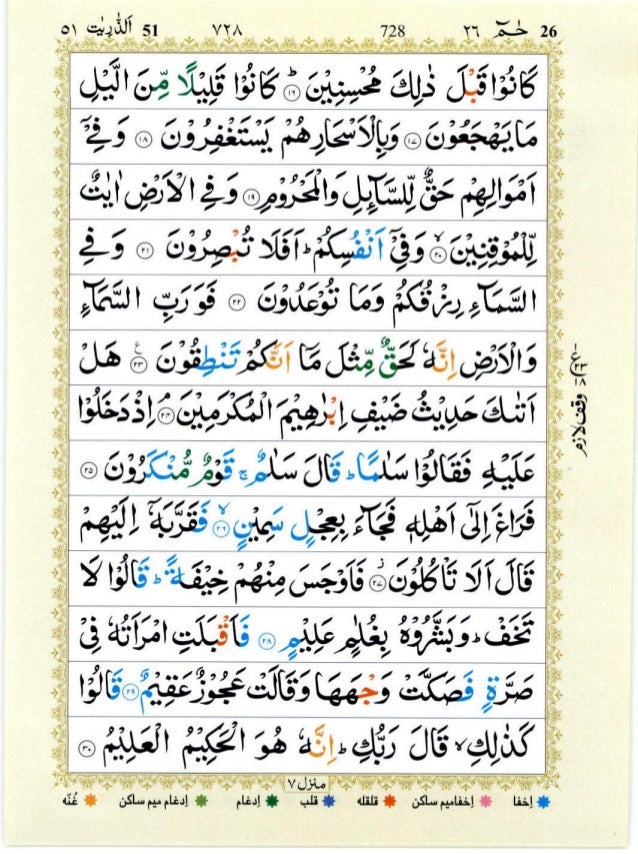 الذّٰريٰت ٥١ 51 ٧٢٨ 728 حٰمٓ ٢٦ 26
كَانُوْا قَبْلَ ذٰلِكَ مُحْسِنِيْنَ ؕ ﴿۱۶﴾ كَانُوْا قَلِيْلًا مِّنَ الَّيْلِ
مَا يَهْجَعُوْنَ ﴿۱۷﴾ وَبِالْاَسْحَارِ هُمْ يَسْتَغْفِرُوْنَ ﴿۱۸﴾ وَفِيْۤ
اَمْوَالِهِمْ حَقٌّ لِّلسَّآىِٕلِ وَالْمَحْرُوْمِ ﴿۱۹﴾ وَفِي الْاَرْضِ اٰيٰتٌ
لِّلْمُوْقِنِيْنَ ۙ ﴿۲۰﴾ وَفِيْۤ اَنْفُسِكُمْ ؕ اَفَلَا تُبْصِرُوْنَ ﴿۲۱﴾ وَفِي
السَّمَآءِ رِزْقُكُمْ وَمَا تُوْعَدُوْنَ ﴿۲۲﴾ فَوَرَبِّ السَّمَآءِ
وَالْاَرْضِ اِنَّهٗ لَحَقٌّ مِّثْلَ مَاۤ اَنَّكُمْ تَنْطِقُوْنَ ﴿۲۳﴾ ع هَلْ
اَتٰىكَ حَدِيْثُ ضَيْفِ اِبْرٰهِيْمَ الْمُكْرَمِيْنَ ۘ ﴿۲۴﴾ اِذْ دَخَلُوْا
عَلَيْهِ فَقَالُوْا سَلٰمًا ؕ قَالَ سَلٰمٌ ۚ قَوْمٌ مُّنْكَرُوْنَ ﴿۲۵﴾
فَرَاغَ اِلٰۤى اَهْلِهٖ فَجَآءَ بِعِجْلٍ سَمِيْنٍ ۙ ﴿۲۶﴾ فَقَرَّبَهٗۤ اِلَيْهِمْ
قَالَ اَلَا تَاْكُلُوْنَ ؗ ﴿۲۷﴾ فَاَوْجَسَ مِنْهُمْ خِيْفَةً ؕ قَالُوْا لَا
تَخَفْ ؕ وَبَشَّرُوْهُ بِغُلٰمٍ عَلِيْمٍ ﴿۲۸﴾ فَاَقْبَلَتِ امْرَاَتُهٗ فِيْ
صَرَّةٍ فَصَكَّتْ وَجْهَهَا وَقَالَتْ عَجُوْزٌ عَقِيْمٌ ﴿۲۹﴾ قَالُوْا
كَذٰلِكِ ۙ قَالَ رَبُّكِ ؕ اِنَّهٗ هُوَ الْحَكِيْمُ الْعَلِيْمُ ﴿۳۰﴾
وقف لازم
منزل ٧
اِخفا اِخفامیم ساکن قلقله قلب اِدغام اِدغام میم ساکن غُنّه